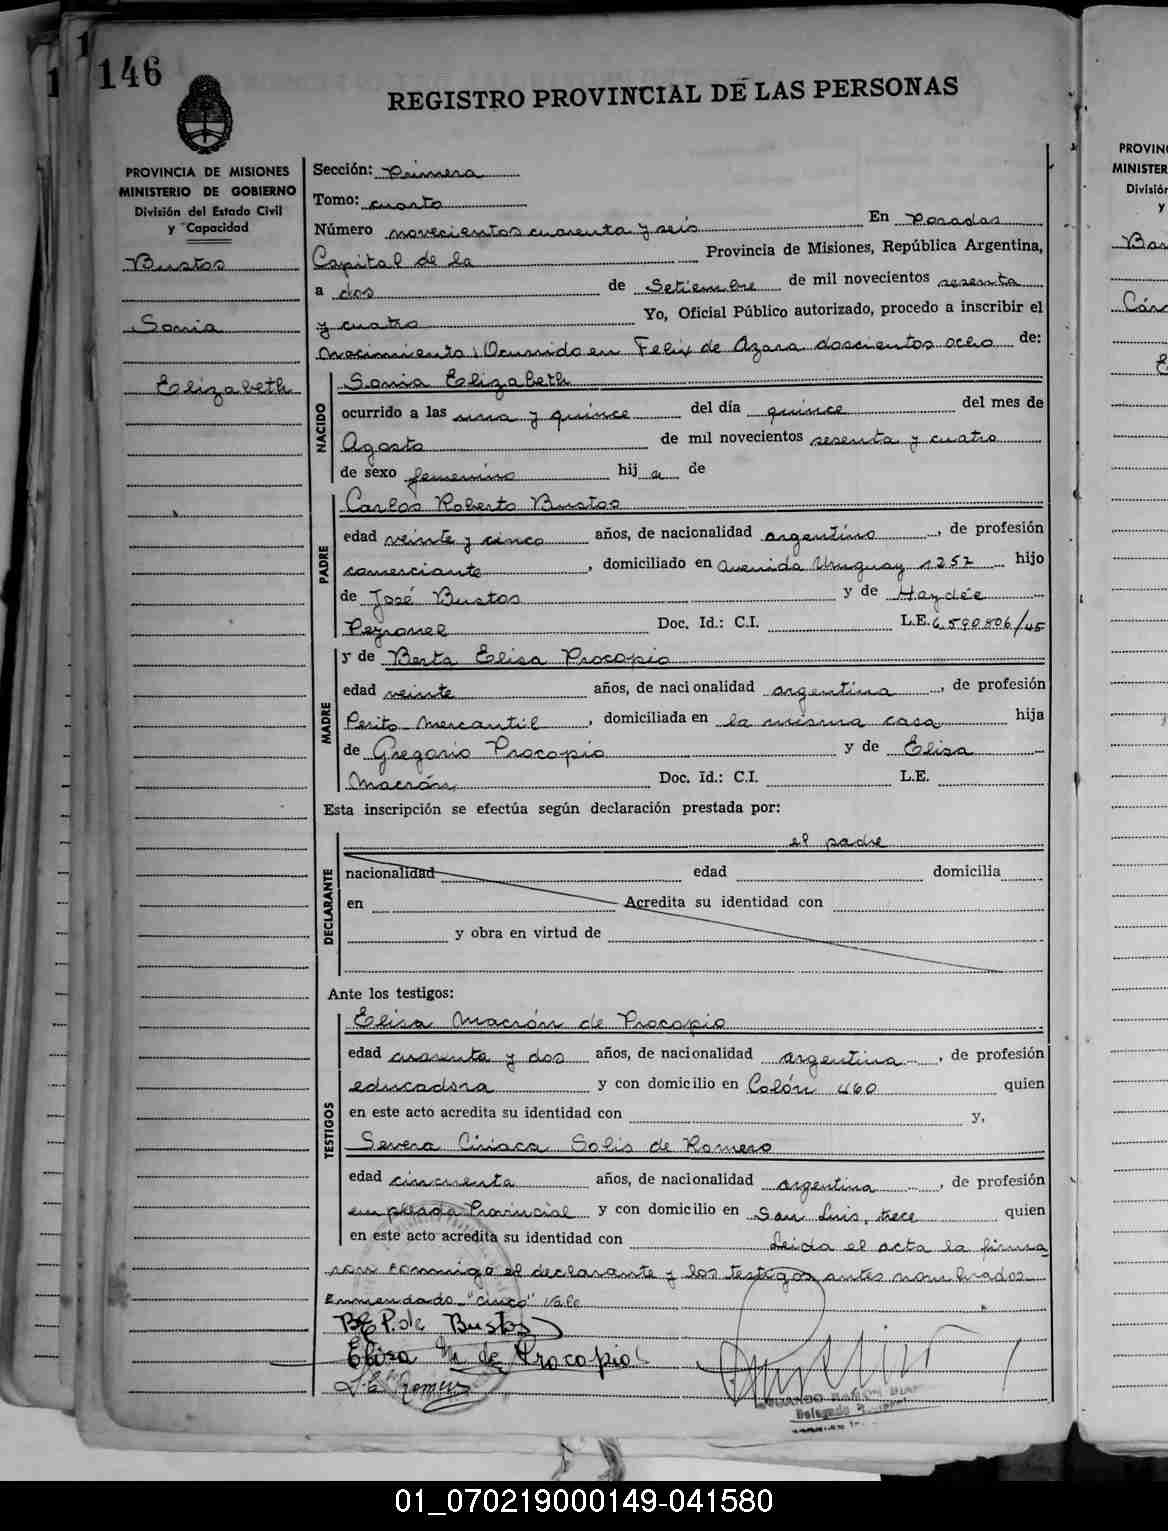 146
REGISTRO PROVINCIAL DE LAS PERSONAS
PROVINCIA DE MISIONES
MINISTERIO DE GOBIERNO
División del Estado Civil
y Capacidad
Bustos
Sonia
Elizabeth
Sección: Primera
Tomo: cuarto
Número novecientos cuarenta y seis En Posadas
Capital de la Provincia de Misiones, República Argentina,
a dos de Setiembre de mil novecientos sesenta
y cuatro Yo, Oficial Público autorizado, procedo a inscribir el
nacimiento, Ocurrido en Felix de Azara doscientos ocho de:
NACIDO
Sonia Elizabeth
ocurrido a las una y quince del día quince del mes de
Agosto de mil novecientos sesenta y cuatro
de sexo femenino hij a de
PADRE
Carlos Roberto Bustos
edad veinte y cinco años, de nacionalidad argentino, de profesión
comerciante, domiciliado en Avenida Uruguay 1252 hijo
de José Bustos y de Haydée
Peyronel Doc. Id.: C.I. L.E.
MADRE
y de Berta Elisa Procopio
edad veinte años, de nacionalidad argentina, de profesión
Perito Mercantil, domiciliada en la misma casa hija
de Gregorio Procopio y de Elisa
Macrón Doc. Id.: C.I. L.E.
Esta inscripción se efectúa según declaración prestada por:
el padre
DECLARANTE
nacionalidad edad domicilia
en Acredita su identidad con
y obra en virtud de
Ante los testigos:
TESTIGOS
Elisa Macrón de Procopio
edad cuarenta y dos años, de nacionalidad argentina, de profesión
educadora y con domicilio en Colón 460 quien
en este acto acredita su identidad con y,
Severa Ciriaca Solis de Romero
edad cincuenta años, de nacionalidad argentina, de profesión
empleada Provincial y con domicilio en San Luis, trece quien
en este acto acredita su identidad con Leida el acta la firma
con conmigo el declarante y los testigos antes nombrados
Enmendado "cinco" Vale
B E P. de Bustos
Elisa M de Procopio
Romero
PROVIN
MINISTER
Divisió
y
01_070219000149-041580